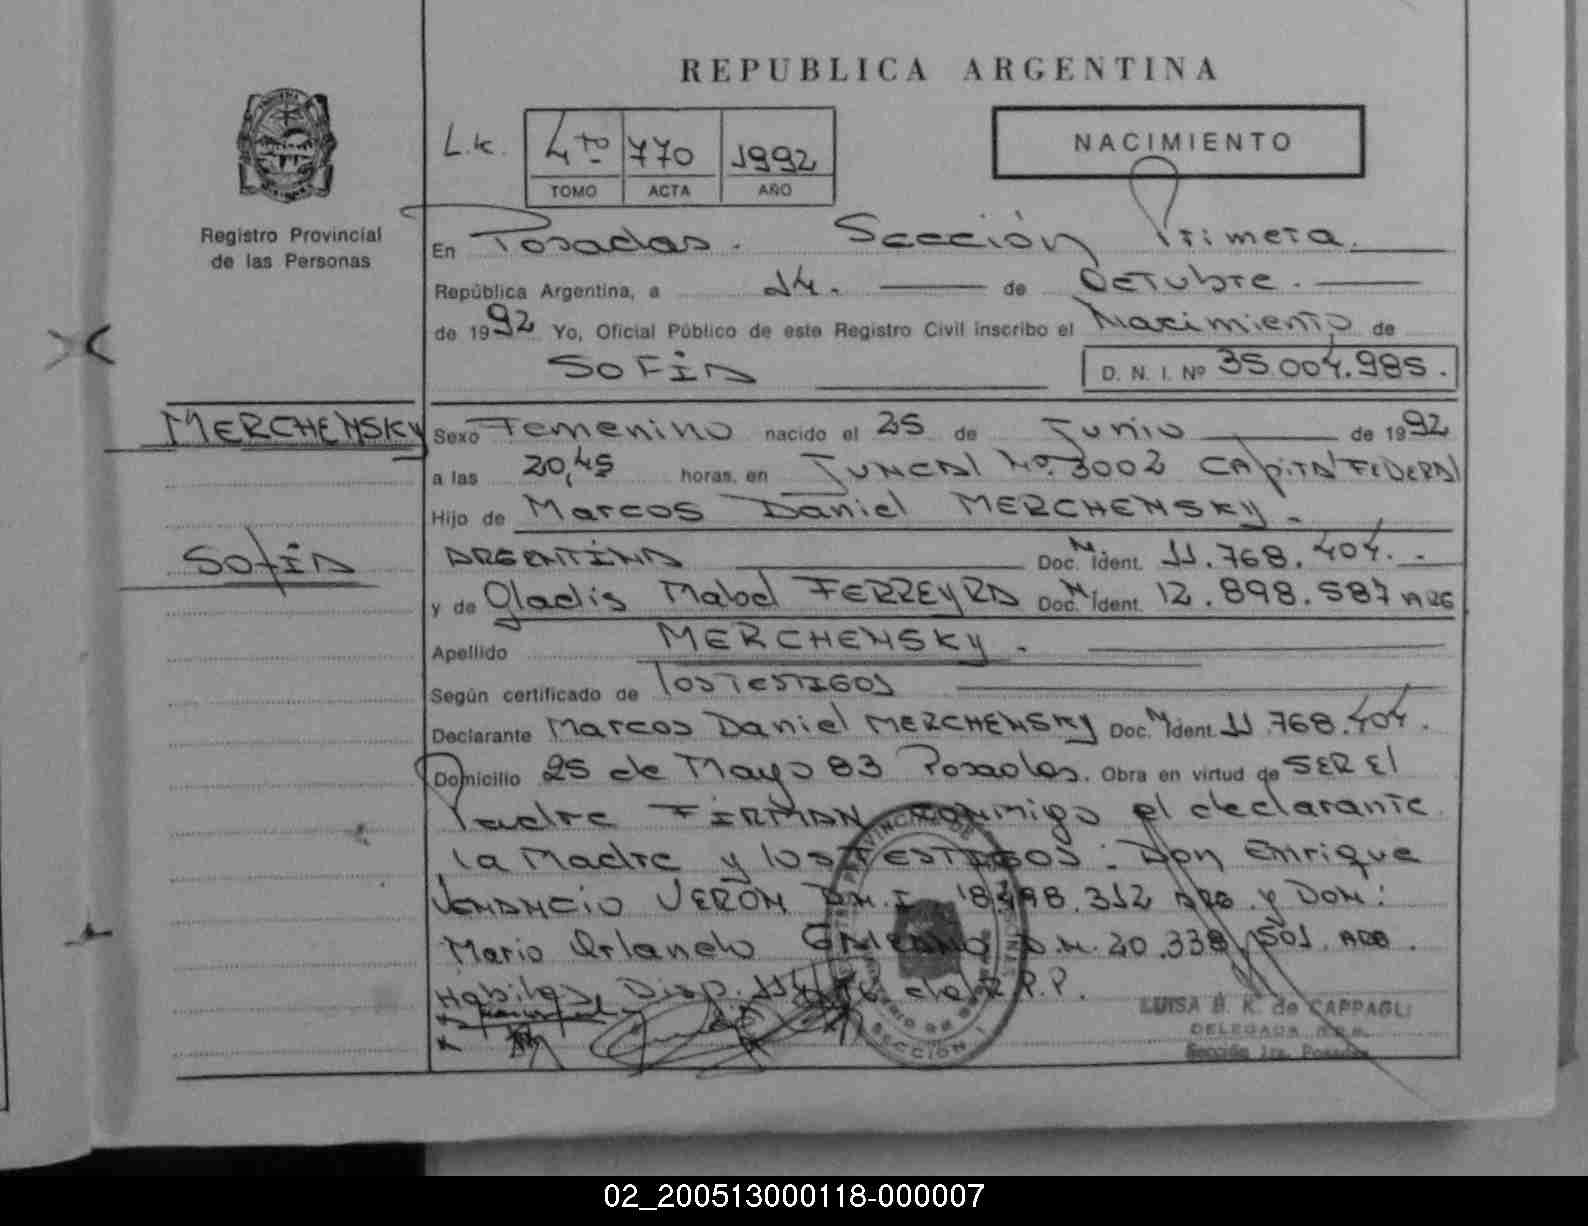 REPUBLICA ARGENTINA
L.k. 4to 770 1992
TOMO ACTA AÑO
NACIMIENTO
Registro Provincial
de las Personas
En Posadas. Sección Primera.
República Argentina, a 14. de Octubre.
de 1992 Yo, Oficial Público de este Registro Civil inscribo el Nacimiento de
SOFIA D. N. I. Nº 35.004.985.
MERCHENSKY
Sexo Femenino nacido el 25 de Junio de 1992
a las 20,45 horas, en JUNCAL Nº 3002 CAPITAL FEDERAL
Hijo de Marcos Daniel MERCHENSKY.
SOFIA
ARGENTINA Doc. N. Ident. 11.768.404.
y de Gladis Mabel FERREYRA Doc. N. Ident. 12.898.587 ARG
Apellido MERCHENSKY.
Según certificado de los TESTIGOS
Declarante Marcos Daniel MERCHENSKY Doc. N. Ident. 11.768.404.
Domicilio 25 de Mayo 83 Posadas. Obra en virtud de SER El
Padre FIRMAN conmigo el declarante
la Madre y los TESTIGOS: Don Enrique
VENANCIO VERON D.N.I. ARG. y DON:
Mario Orlando D.N. 20.338.501. ARG.
Habilas, Disp. del R.P.P.
LUISA B. K. de CAPPAGLI
DELEGADA R.P.P.
Sección 1ra. Posadas
SECCION I
02_200513000118-000007